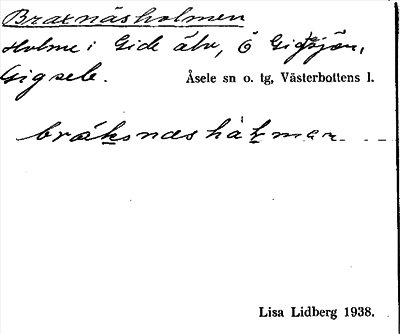 Braxnäsholmen
Holme i Gide älv, Ö Gigsjön,
Gigsele.
Åsele sn o. tg, Västerbottens l.
bråksnæshåḷmɐn
Lisa Lidberg 1938.